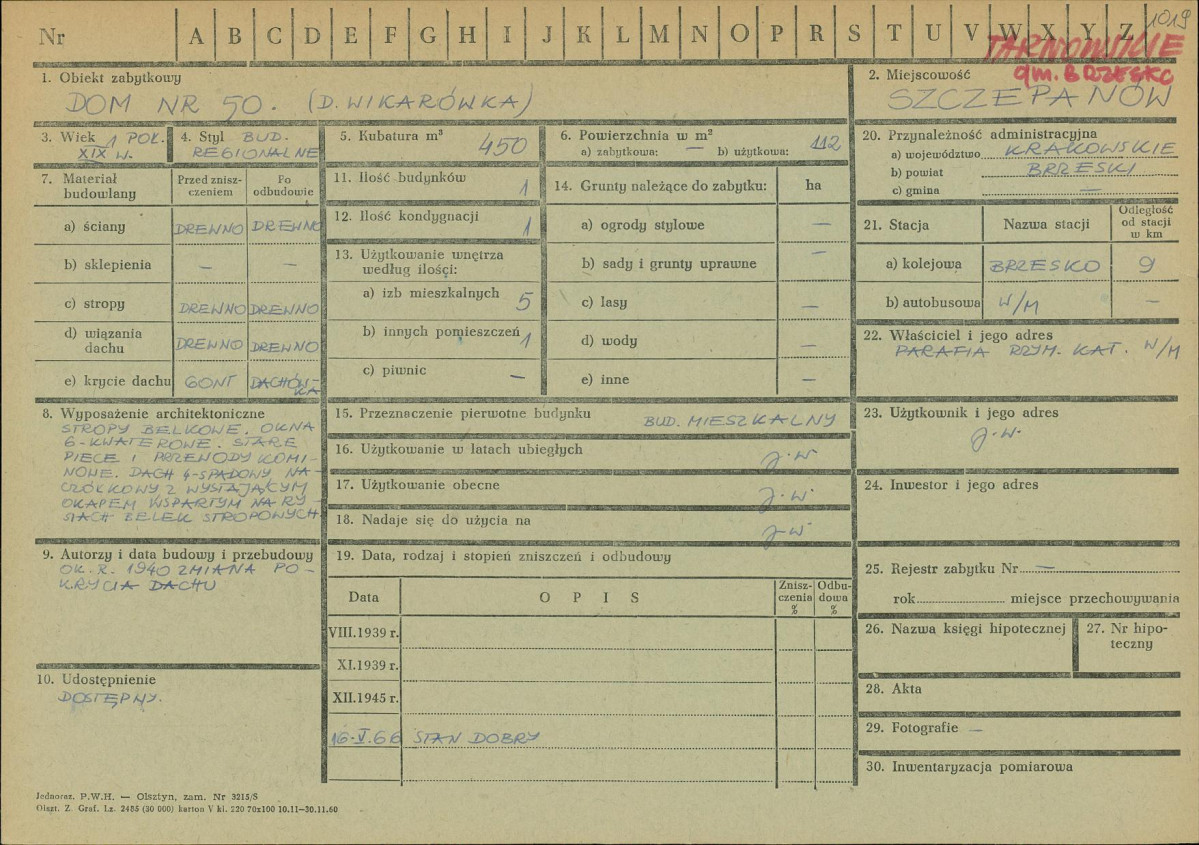 1019
Nr A B C D E F G H I J K L M N O P R S T U V W X Y Z
TARNOWSKIE
d/m. BRZESKO
1. Obiekt zabytkowy
DOM NR 50. (D. WIKARÓWKA)
2. Miejscowość
SZCZEPANÓW
3. Wiek 1 POŁ.
XIX W.
4. Styl BUD.
REGIONALNE
5. Kubatura m³
450
6. Powierzchnia w m²
a) zabytkowa: — b) użytkowa: 112
7. Materiał
budowlany
Przed znisz-
czeniem
Po
odbudowie
a) ściany DREWNO DREWNO
b) sklepienia — —
c) stropy DREWNO DREWNO
d) wiązania
dachu DREWNO DREWNO
e) krycie dachu GONT DACHÓW-
KA
8. Wyposażenie architektoniczne
STROPY BELKOWE. OKNA
6-KWATEROWE. STARE
PIECE I PRZEWODY KOMI-
NOWE. DACH 4-SPADOWY NA-
CZÓŁKOWY Z WYSTAJĄCYM
OKAPEM WSPARTYM NA RY-
SIACH BELEK STROPOWYCH
9. Autorzy i data budowy i przebudowy
OK. R. 1940 ZMIANA PO-
KRYCIA DACHU
10. Udostępnienie
DOSTĘPNY.
11. Ilość budynków
1
12. Ilość kondygnacji
1
13. Użytkowanie wnętrza
według ilości:
a) izb mieszkalnych 5
b) innych pomieszczeń 1
c) piwnic —
14. Grunty należące do zabytku: ha
a) ogrody stylowe —
b) sady i grunty uprawne —
c) lasy —
d) wody —
e) inne —
15. Przeznaczenie pierwotne budynku
BUD. MIESZKALNY
16. Użytkowanie w latach ubiegłych
J.W
17. Użytkowanie obecne
J.W.
18. Nadaje się do użycia na
J.W
19. Data, rodzaj i stopień zniszczeń i odbudowy
Data O P I S Znisz-
czenia
% Odbu-
dowa
%
VIII.1939 r.
XI.1939 r.
XII.1945 r.
16.V.66 STAN DOBRY
20. Przynależność administracyjna
a) województwo KRAKOWSKIE
b) powiat BRZESKI
c) gmina —
21. Stacja Nazwa stacji Odległość
od stacji
w km
a) kolejowa BRZESKO 9
b) autobusowa W/M —
22. Właściciel i jego adres
PARAFIA RZYM. KAT. W/M
23. Użytkownik i jego adres
J.W.
24. Inwestor i jego adres
25. Rejestr zabytku Nr —
rok miejsce przechowywania
26. Nazwa księgi hipotecznej
27. Nr hipo-
teczny
28. Akta
29. Fotografie —
30. Inwentaryzacja pomiarowa
Jednoraz. P.W.H. — Olsztyn, zam. Nr 3215/S
Olszt. Z. Graf. Lz. 2485 (30 000) karton V kl. 220 70x100 10.11—30.11.60